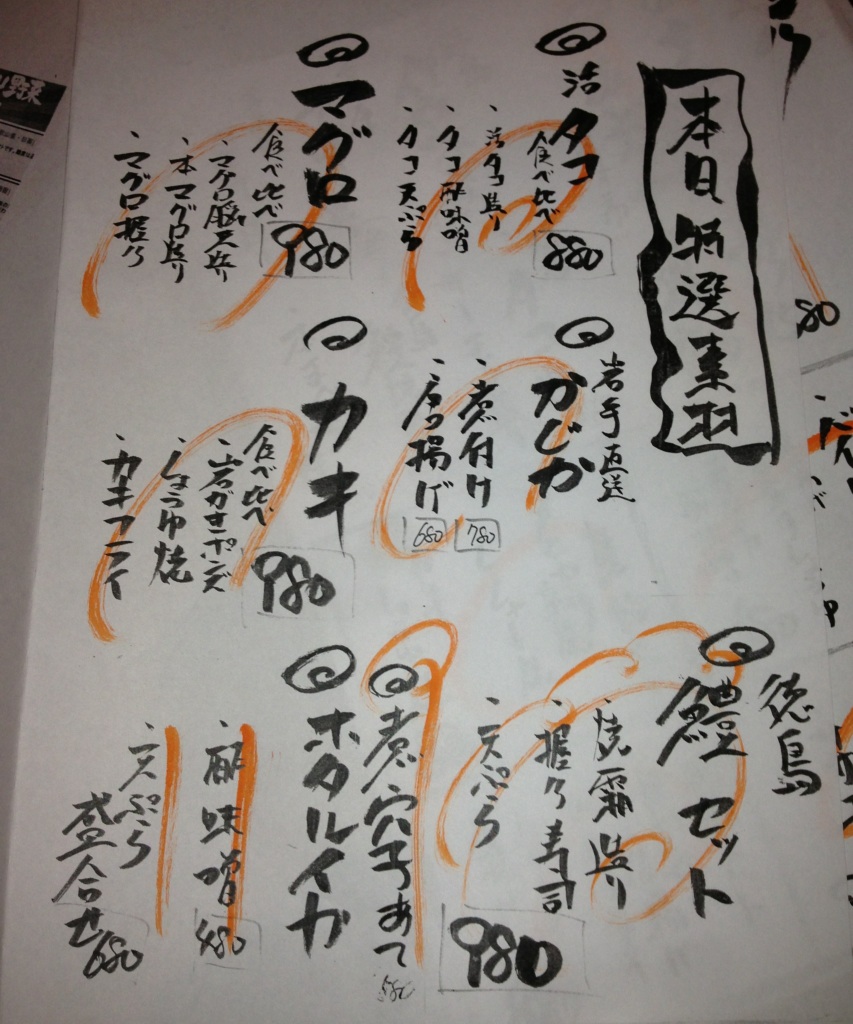 本日特選素材
活タコ
食べ比べ
880
・活タコ造り
・タコ酢味噌
・タコ天ぷら
マグロ
食べ比べ
980
・マグロ脳天造り
・本マグロ造り
・マグロ握り
岩手直送
かじか
・煮付け
780
・唐揚げ
680
カキ
食べ比べ
980
・岩ガキポンズ
・しょうゆ焼
・カキフライ
徳島
鱧セット
・焼霜造り
・握り寿司
・天ぷら
980
煮穴子あて
580
ホタルイカ
・酢味噌
480
・天ぷら
盛合せ
680
野菜